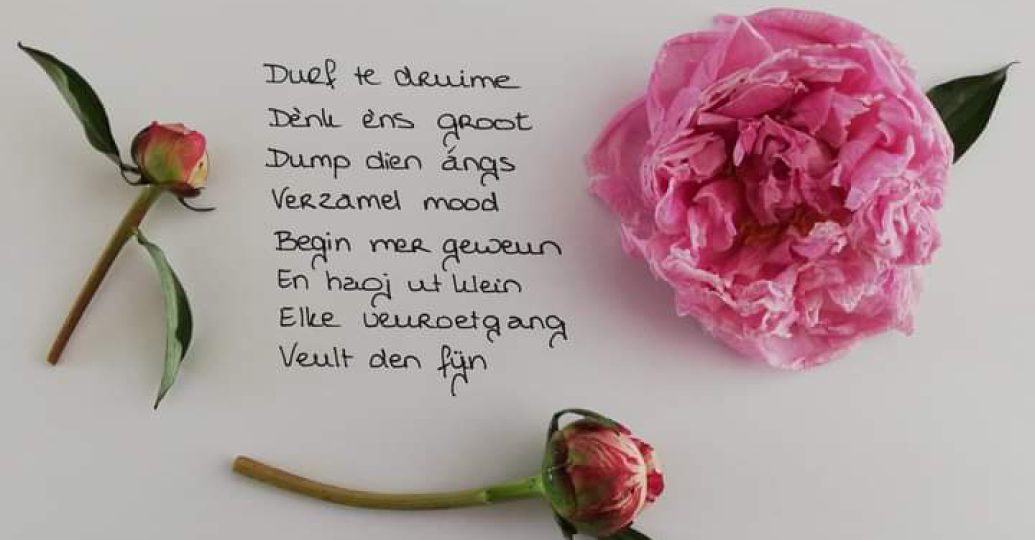 Durf te druime
Dènk èns groot
Dump dien ángs
Verzamel mood
Begin mer geweun
En haoj ut klein
Elke veuroetgang
Veult den fijn